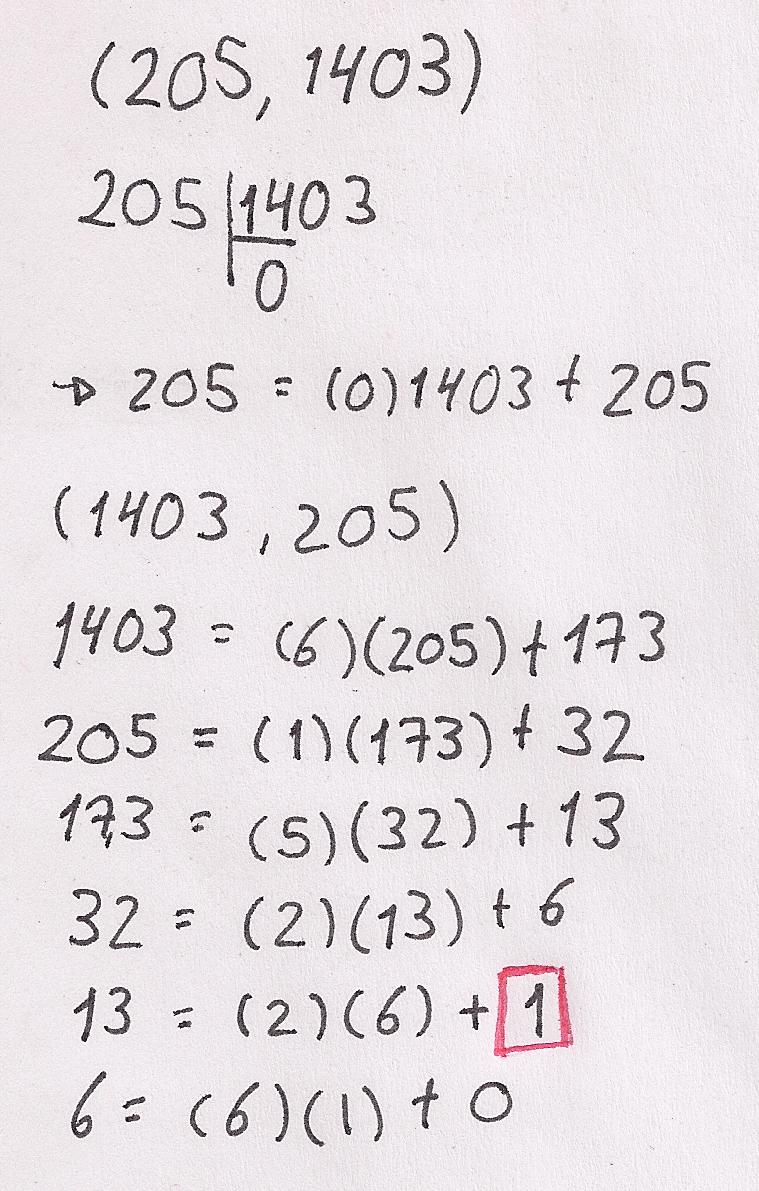 (205, 1403)
205 1403
0
→ 205 = (0)1403 + 205
(1403, 205)
1403 = (6)(205) + 173
205 = (1)(173) + 32
173 = (5)(32) + 13
32 = (2)(13) + 6
13 = (2)(6) + 1
6 = (6)(1) + 0